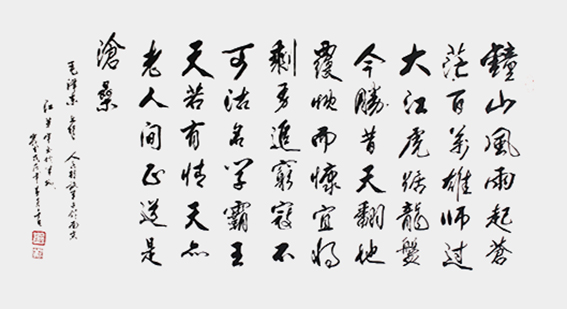 鐘山風雨起蒼
茫百萬雄師過
大江虎踞龍盤
今勝昔天翻地
覆慨而慷宜將
剩勇追窮寇不
可沽名學霸王
天若有情天亦
老人間正道是
滄桑
毛澤東 七律 人民解放軍占領南京